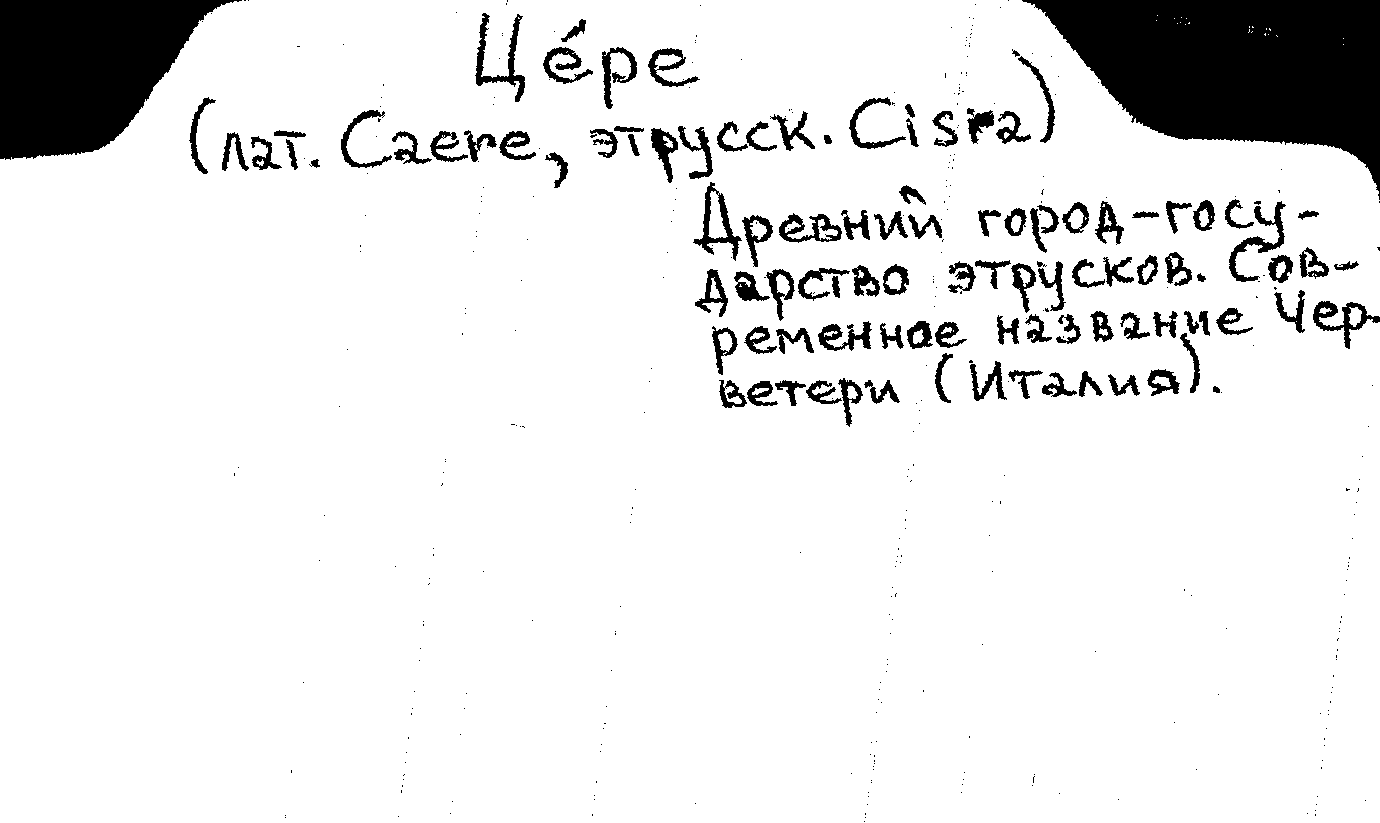 Це́ре
(лат. Caere, этрусск. Cisra)
Древний город-госу-
дарство этрусков. Сов-
ременное название Чер-
ветери (Италия).